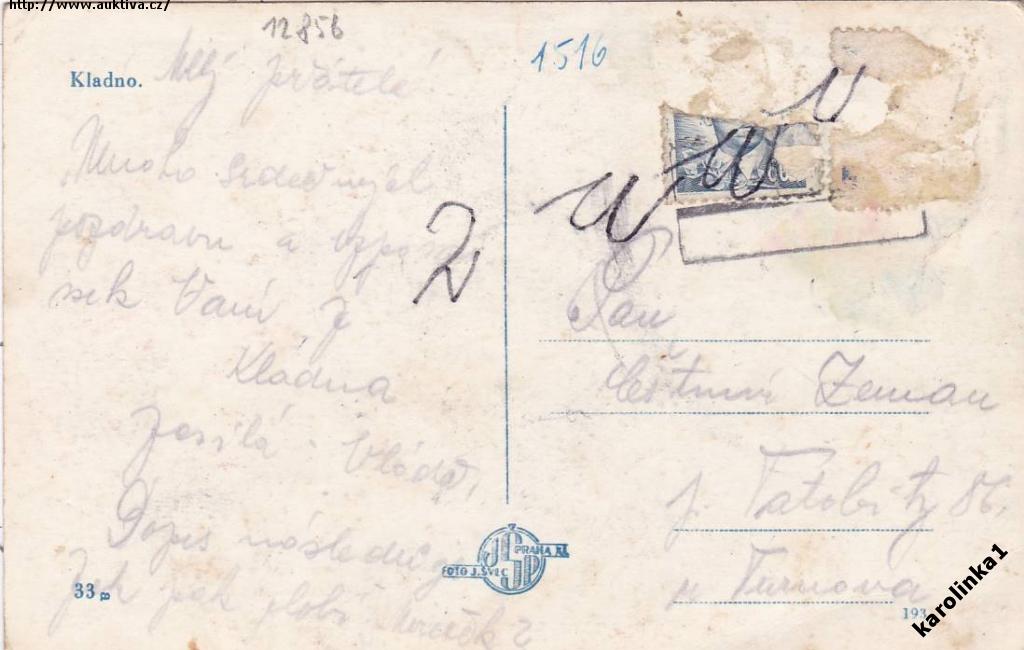 http://www.auktiva.cz/
12856
1516
Kladno.
Milý přátelé!
Mnoho srdečných
pozdravu a vzpomí
nek Vám z
Kladna
zasílá Vláďa,
Dopis následuje
Jak pak zlobí
2
Pan
Zeman
Tatobity 86.
u Turnova
JSP
PRAHA XI.
FOTO J. ŠVEC
33 B
193
karolinka1